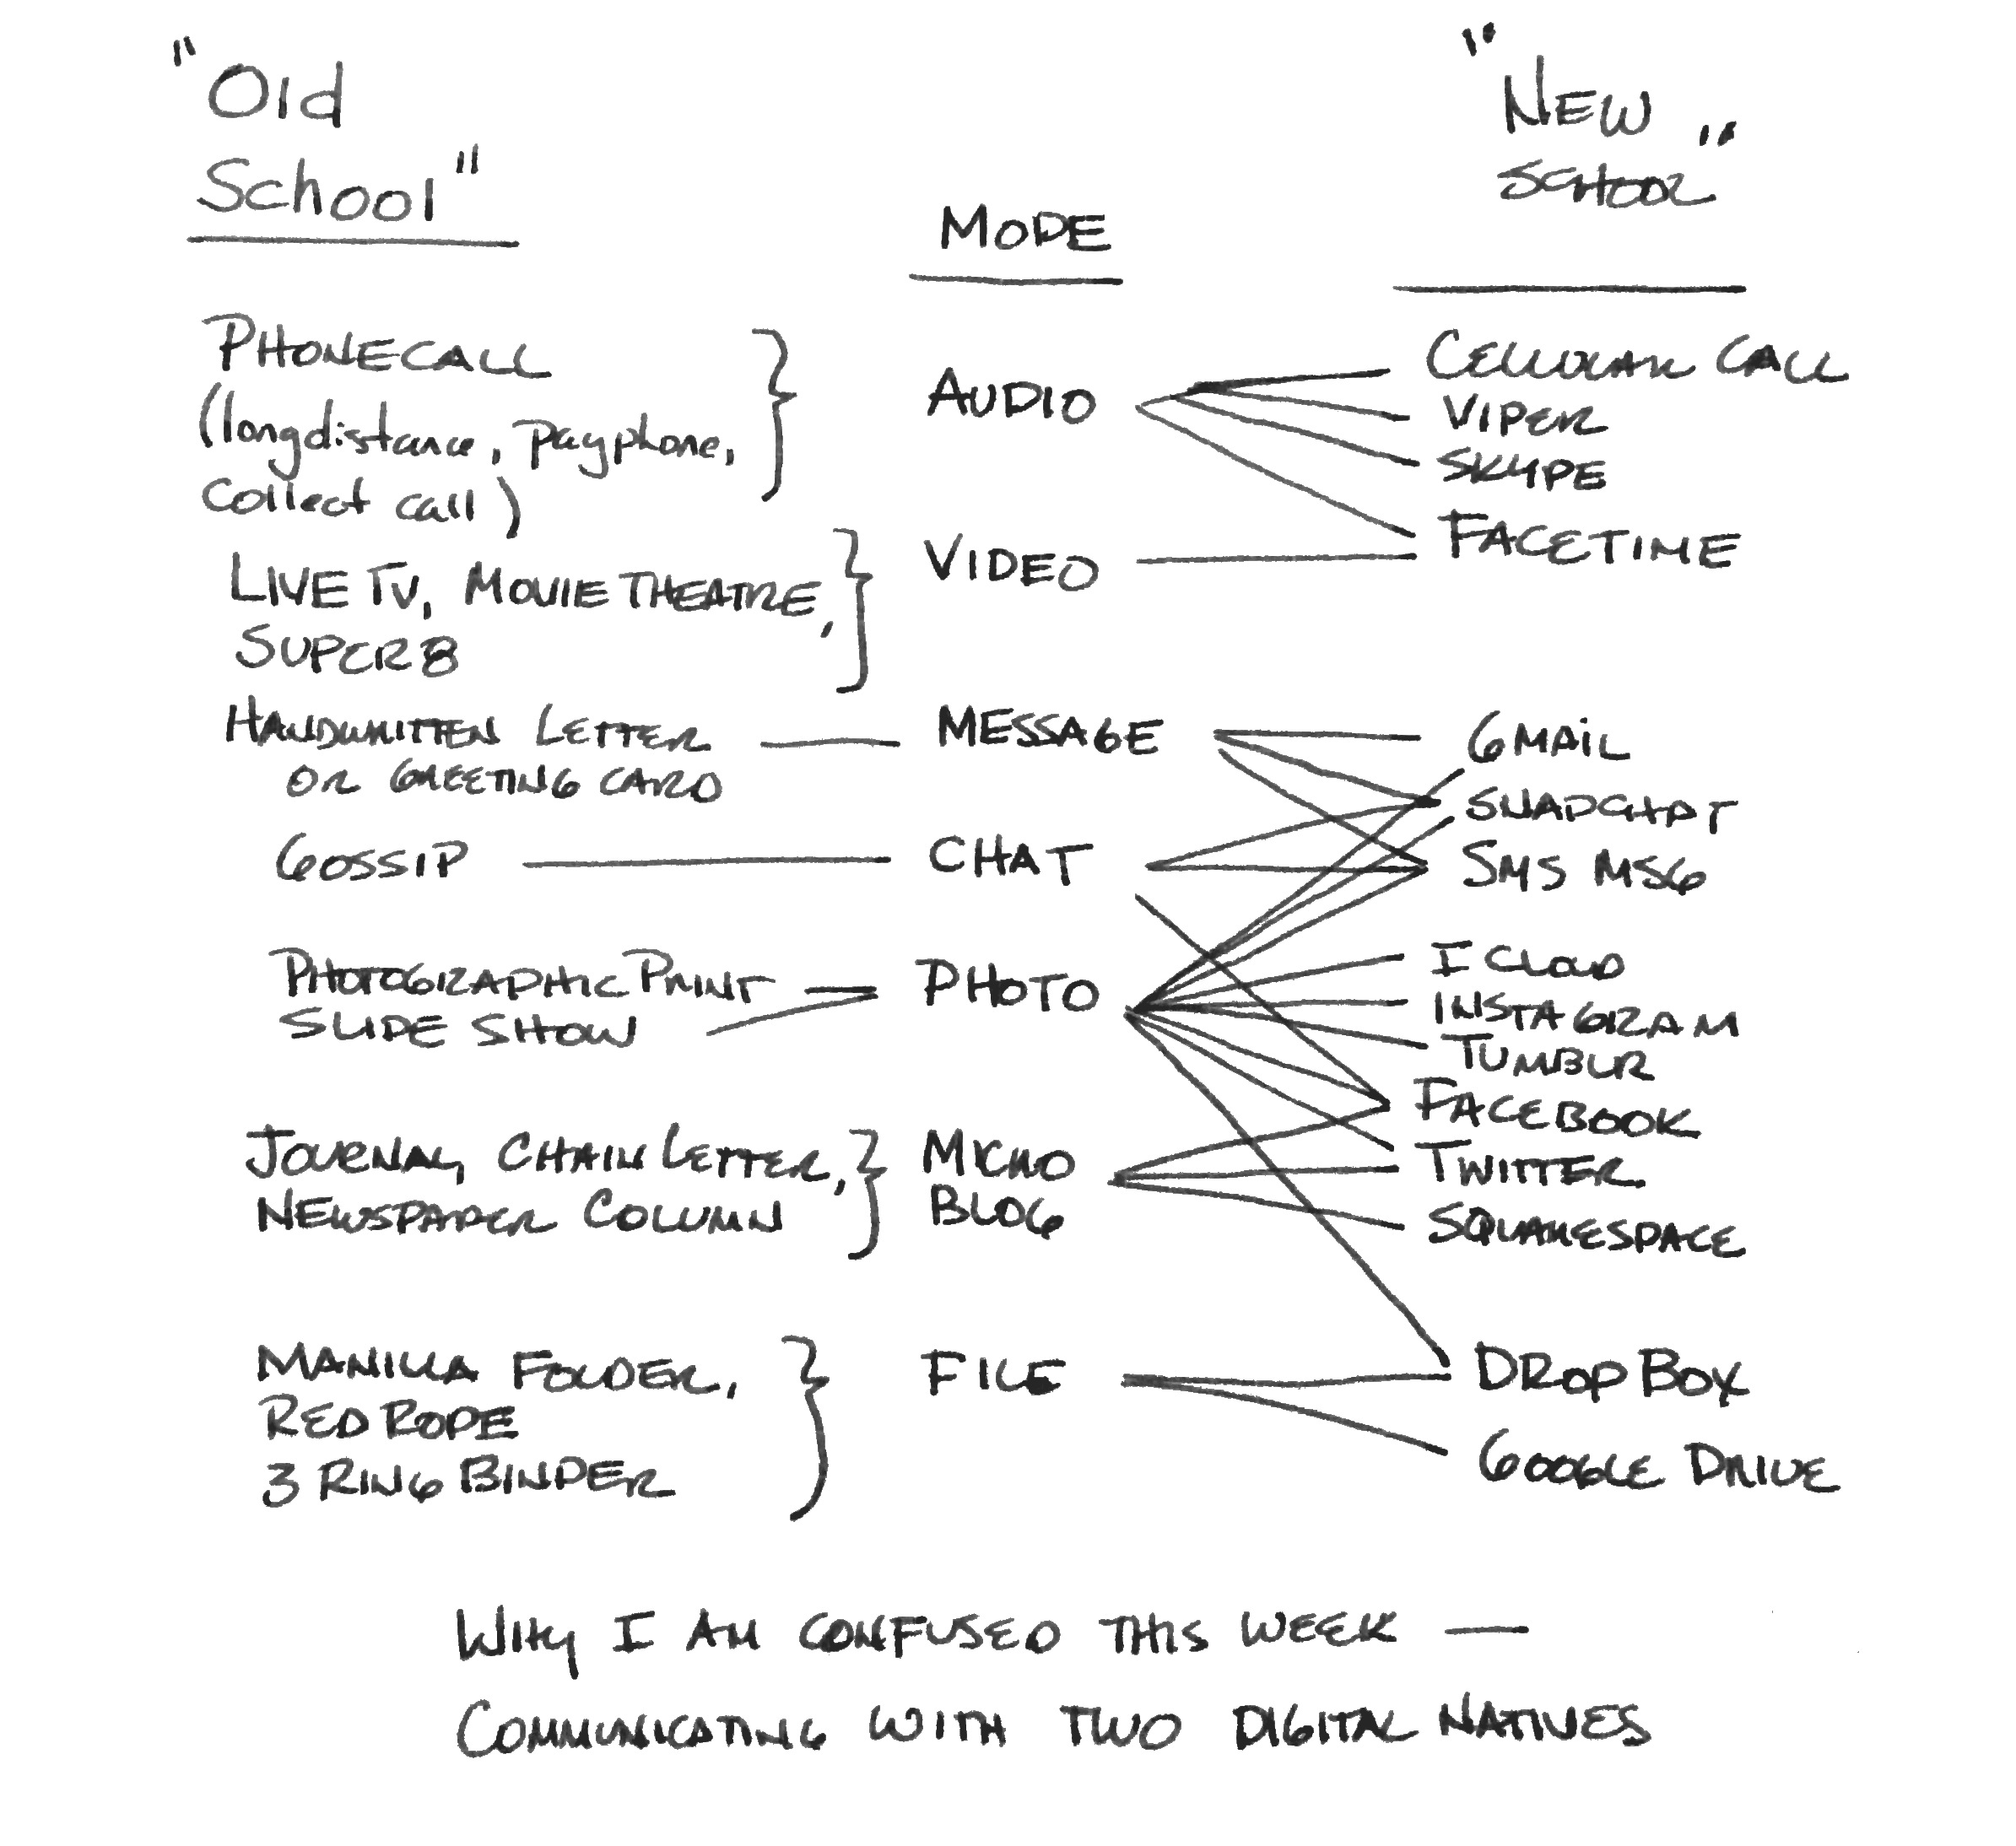 "Old
School"
MODE
"NEW
SCHOOL"
PHONECALL
(longdistance, payphone,
Collect call)
AUDIO
CELLULAR CALL
VIPER
SKYPE
FACETIME
LIVE TV, MOVIE THEATRE,
SUPER 8
VIDEO
HANDWRITTEN LETTER
OR GREETING CARD
MESSAGE
GMAIL
SNAPCHAT
SMS MSG
GOSSIP
CHAT
PHOTOGRAPHIC PRINT
SLIDE SHOW
PHOTO
I CLOUD
INSTAGRAM
TUMBLR
FACEBOOK
TWITTER
SQUARESPACE
JOURNAL, CHAIN LETTER,
NEWSPAPER COLUMN
MICRO
BLOG
MANILLA FOLDER,
RED ROPE
3 RING BINDER
FILE
DROP BOX
GOOGLE DRIVE
WHY I AM CONFUSED THIS WEEK —
COMMUNICATING WITH TWO DIGITAL NATIVES